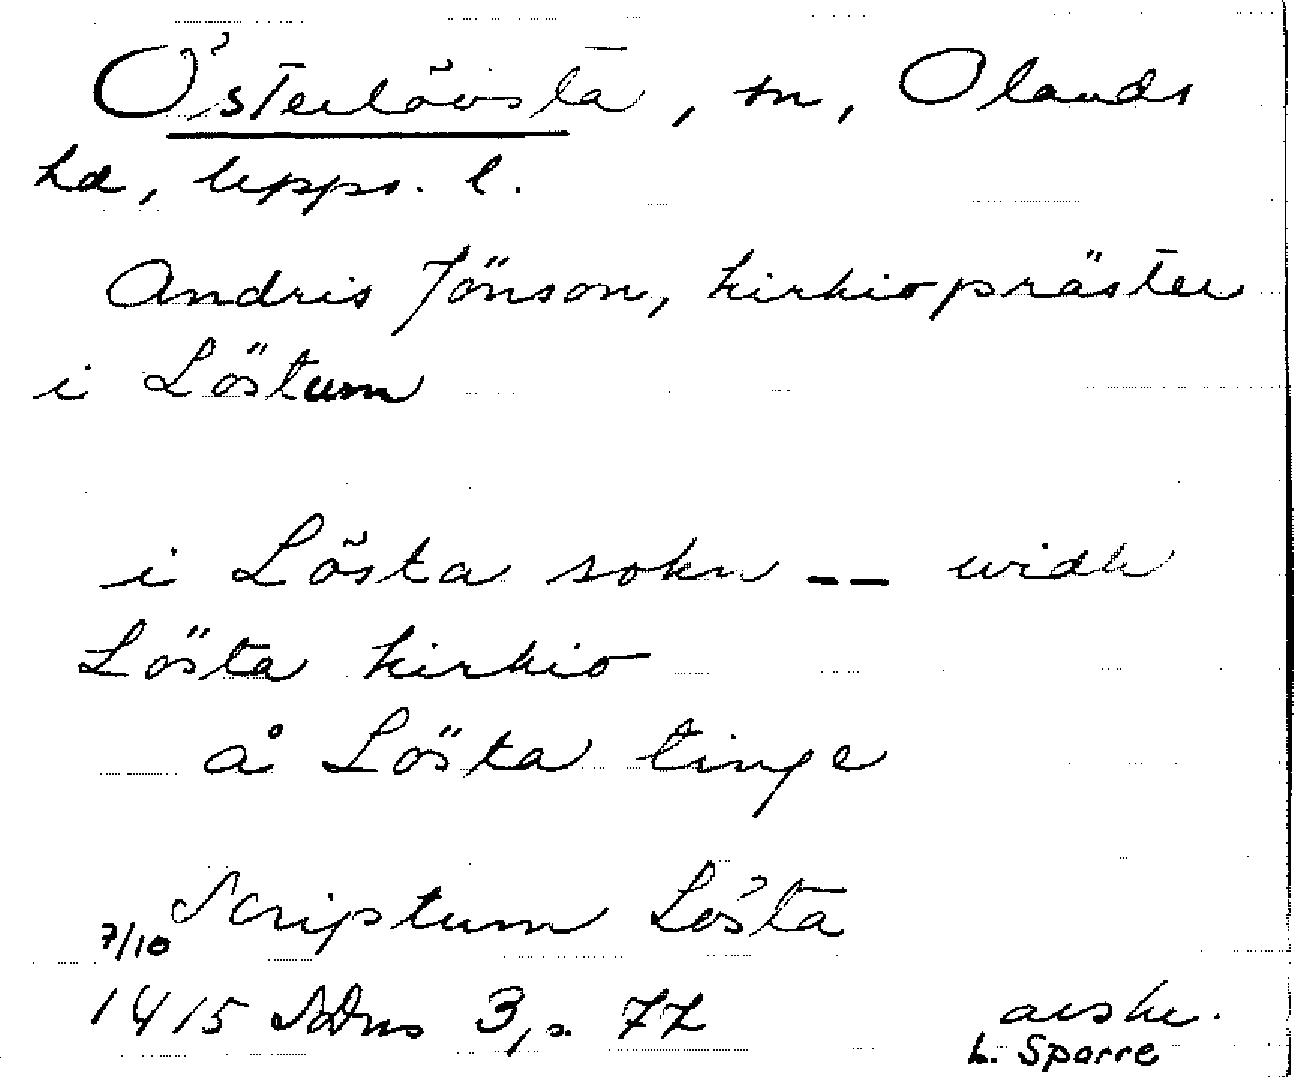 Österlövsta, sn, Olands
hd, Upps. l.
Andris Jönson, kirkiopräster
i Löstum
i Lösta sokn -- widh
Lösta kirkio
å Lösta tinge
Scriptum Lösta
7/10
1415 SDns 3, s. 77
avskr.
L. Sparre